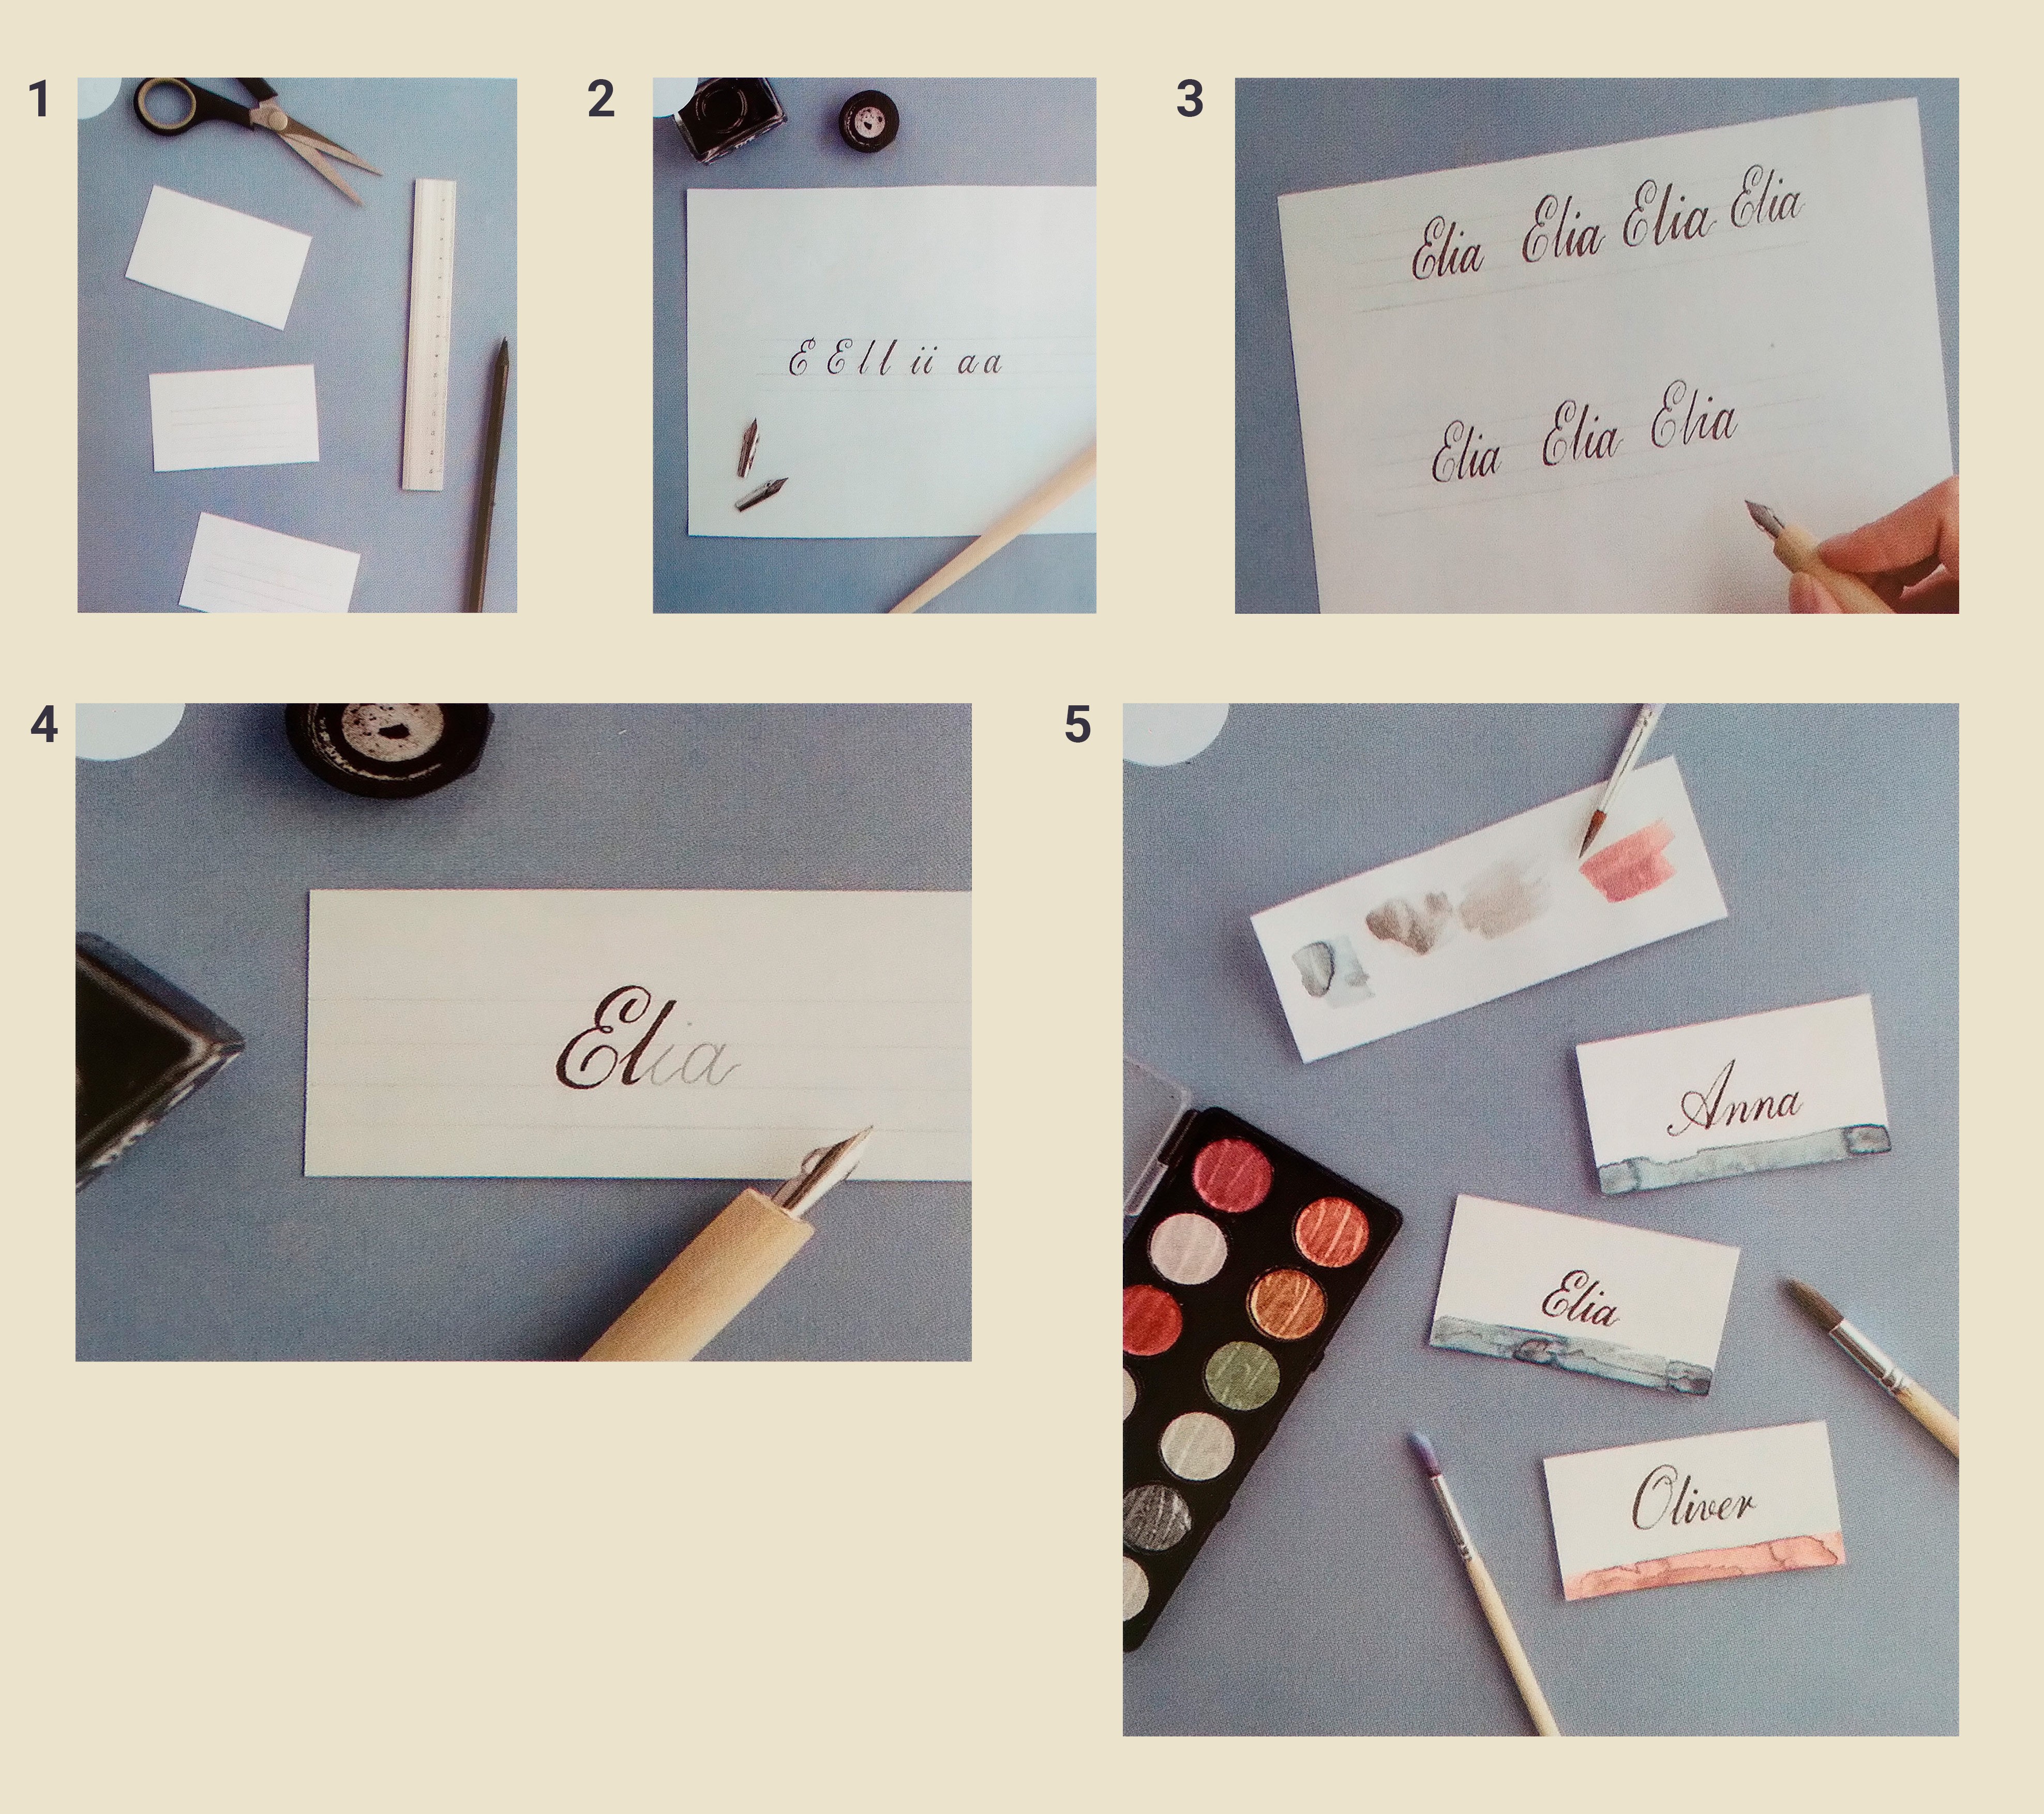 1
2
E E l l ii a a
3
Elia Elia Elia Elia
Elia Elia Elia
4
Elia
5
Anna
Elia
Oliver